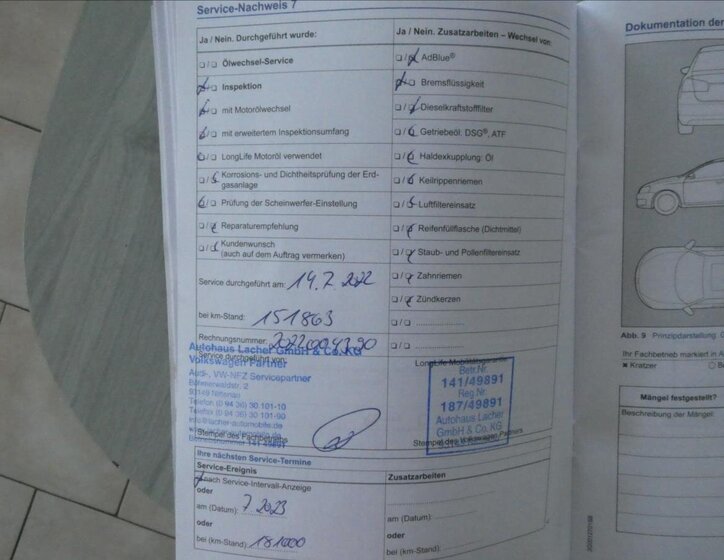 Service-Nachweis 7
Ja / Nein. Durchgeführt wurde:
Ölwechsel-Service
Inspektion
mit Motorölwechsel
mit erweitertem Inspektionsumfang
LongLife Motoröl verwendet
Korrosions- und Dichtheitsprüfung der Erd-
gasanlage
Prüfung der Scheinwerfer-Einstellung
Reparaturempfehlung
Kundenwunsch
(auch auf dem Auftrag vermerken)
Service durchgeführt am: 14.7.2022
bei km-Stand: 151863
Rechnungsnummer:
Service durchgeführt von:
Autohaus Lacher GmbH & Co. KG
Volkswagen Partner
Audi-, VW-NFZ Servicepartner
Böhmerwaldstr. 2
93149 Nittenau
Telefon (0 94 36) 30 101-10
Telefax (0 94 36) 30 101-90
Stempel des Fachbetriebs
Ja / Nein. Zusatzarbeiten – Wechsel von:
AdBlue®
Bremsflüssigkeit
Dieselkraftstofffilter
Getriebeöl: DSG®, ATF
Haldexkupplung: Öl
Keilrippenriemen
Luftfiltereinsatz
Reifenfüllflasche (Dichtmittel)
Staub- und Pollenfiltereinsatz
Zahnriemen
Zündkerzen
LongLife Mobilitätsgarantie
Betr.Nr.
141/49891
Reg.Nr.
187/49891
Autohaus Lacher
GmbH & Co. KG
Stempel des Volkswagen Partners
Ihre nächsten Service-Termine
Service-Ereignis
nach Service-Intervall-Anzeige
oder
am (Datum): 7 2023
oder
bei (km-Stand): 181000
Zusatzarbeiten
am (Datum):
bei (km-Stand):
Dokumentation der
Abb. 9 Prinzipdarstellung:
Ihr Fachbetrieb markiert in
Kratzer
Mängel festgestellt?
Beschreibung der Mängel: